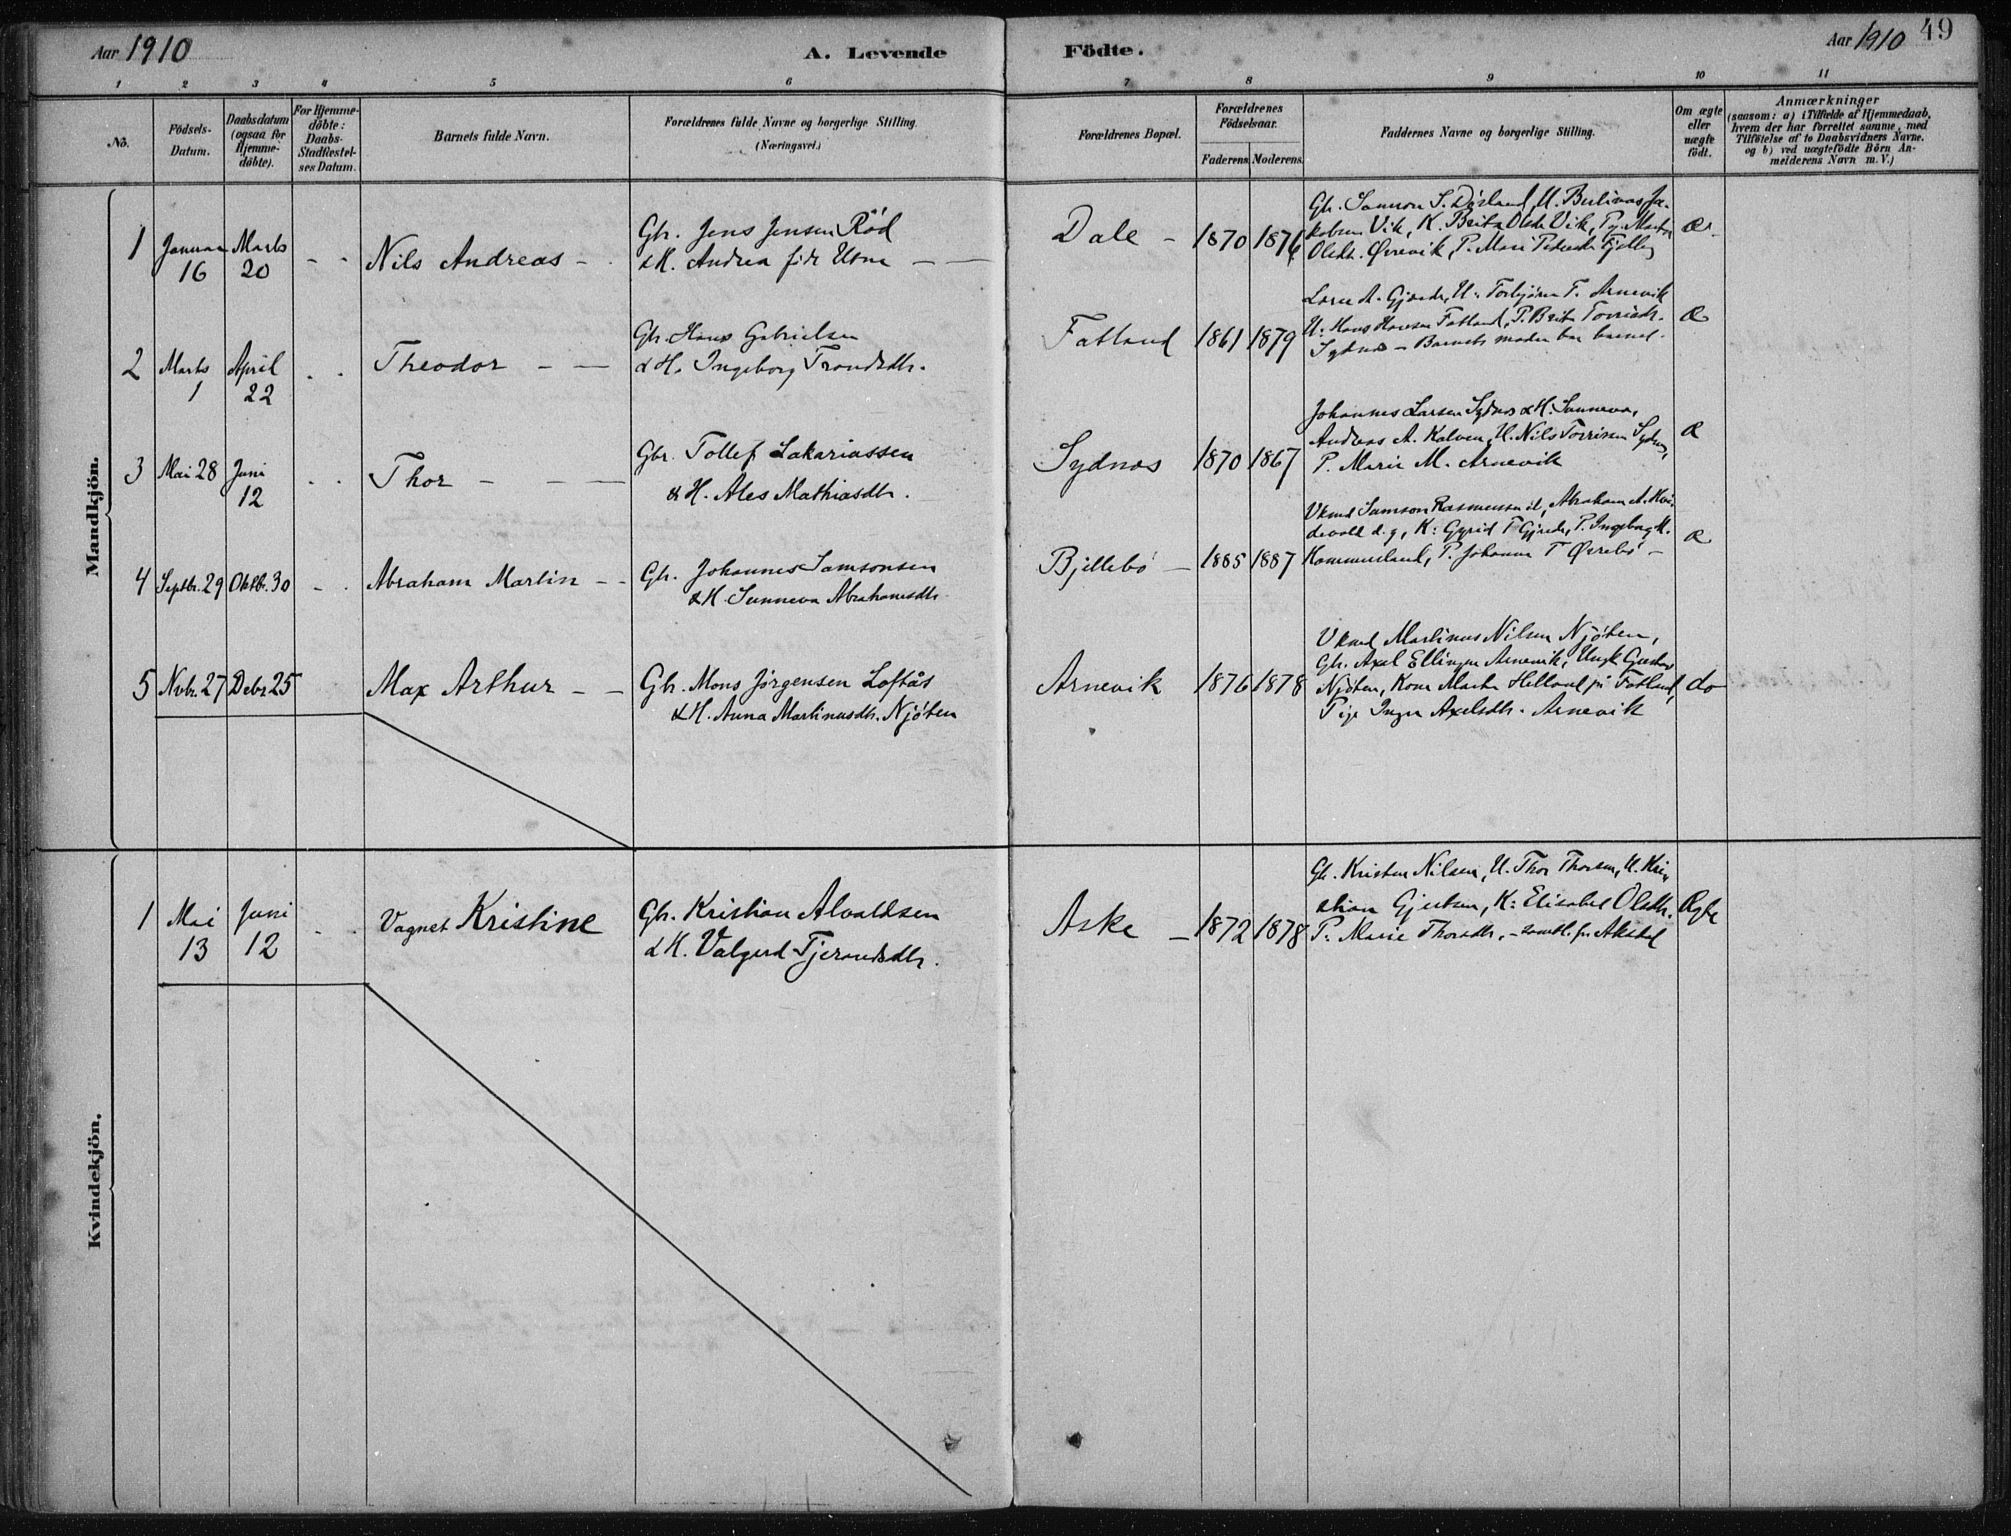 Aar 1910
A. Levende
Födte.
Aar 1910
49
1 2 3 4 5 6 7 8 9 10 11
No.
Födsels-
Datum.
Daabsdatum
(ogsaa for
Hjemme-
döbte).
For Hjemme-
döbte:
Daabs-
Stadfæstel-
ses Datum.
Barnets fulde Navn.
Forældrenes fulde Navne og borgerlige Stilling.
(Næringsvei.)
Forældrenes Bopæl.
Forældrenes
Födselsaar.
Faderens. Moderens.
Faddernes Navne og borgerlige Stilling.
Om ægte
eller
uægte
födt.
Anmærkninger
(saasom: a) i Tilfælde af Hjemmedaab,
hvem der har forrettet samme, med
Tilföielse af to Daabsvidners Navne.
og b) ved uægtefödte Börn An-
melderens Navn m. V.)
Mandkjön.
1 Januar 16 Marts 20 - - Nils Andreas -
Gbr. Jens Jensen Röd
& H. Andrea
Dale - 1870 1876
Gbr. Samson S. U. Berlinus Ja-
kobsen Vik, K. Brita Olsdr Vik, Marta
Olsdr. Øvrevik, P. Mari
Æ.
2 Marts 1 April 22 - - Theodor - -
Gbr. Hans Gabrielsen
& H. Ingeborg Trondsdtr.
Fatland 1861 1879
Lars A. Gjerde, U. Torbjörn T. Arnevik
U. Hans Hansen Fatland, P. Brita
Sydnes - Barnets moder bar barnet.
Æ
3 Mai 28 Juni 12 - - Thor - - -
Gbr. Tollef Zakariassen
& H. Ales Mathiasdtr.
Sydnes 1870 1867
Johannes Larsen Sydnes & H. Sunneva,
Andreas A. Kalven, U. Nils Torrisen Sydnes,
P. Marie M. Arnevik
Æ
4 Septbr. 29 Oktbr. 30 - - Abraham Martin - -
Gbr. Johannes Samsonsen
& H. Sunneva Abrahamsdtr.
Bjellebö - 1885 1887
Ukmd Samson Rasmussen ib, Abraham A.
d. y, K: Gyrid T Gjerde, P. Ingeborg
P. Johanna T Øvrebö -
Æ
5 Nvbr. 27 Debr 25 Max Arthur - -
Gbr. Mons Jörgensen Loftås
& H. Anna Martinusdtr. Njöten
Arnevik 1876 1878
Ukmd Martinus Nilsen Njöten,
Gbr. Axel Ellingsen Arnevik, Ungk Gustav
Njöten, Kone Marta Helland på Fatland,
Pige Inga Axelsdtr. Arnevik
do
Kvindekjön.
1 Mai 13 Juni 12 - - Vagnet Kristine
Gbr. Kristian Alvaldsen
& H. Valgerd Tjerandsdtr.
Aske - 1872 1878
Gbr. Kristen Nilsen, U. Thor Thorsen, U. Kri-
stian Gjertsen, K: Elisabet Olsdtr.
P: Marie Thorsdtr, - samtl. fra
Ægte